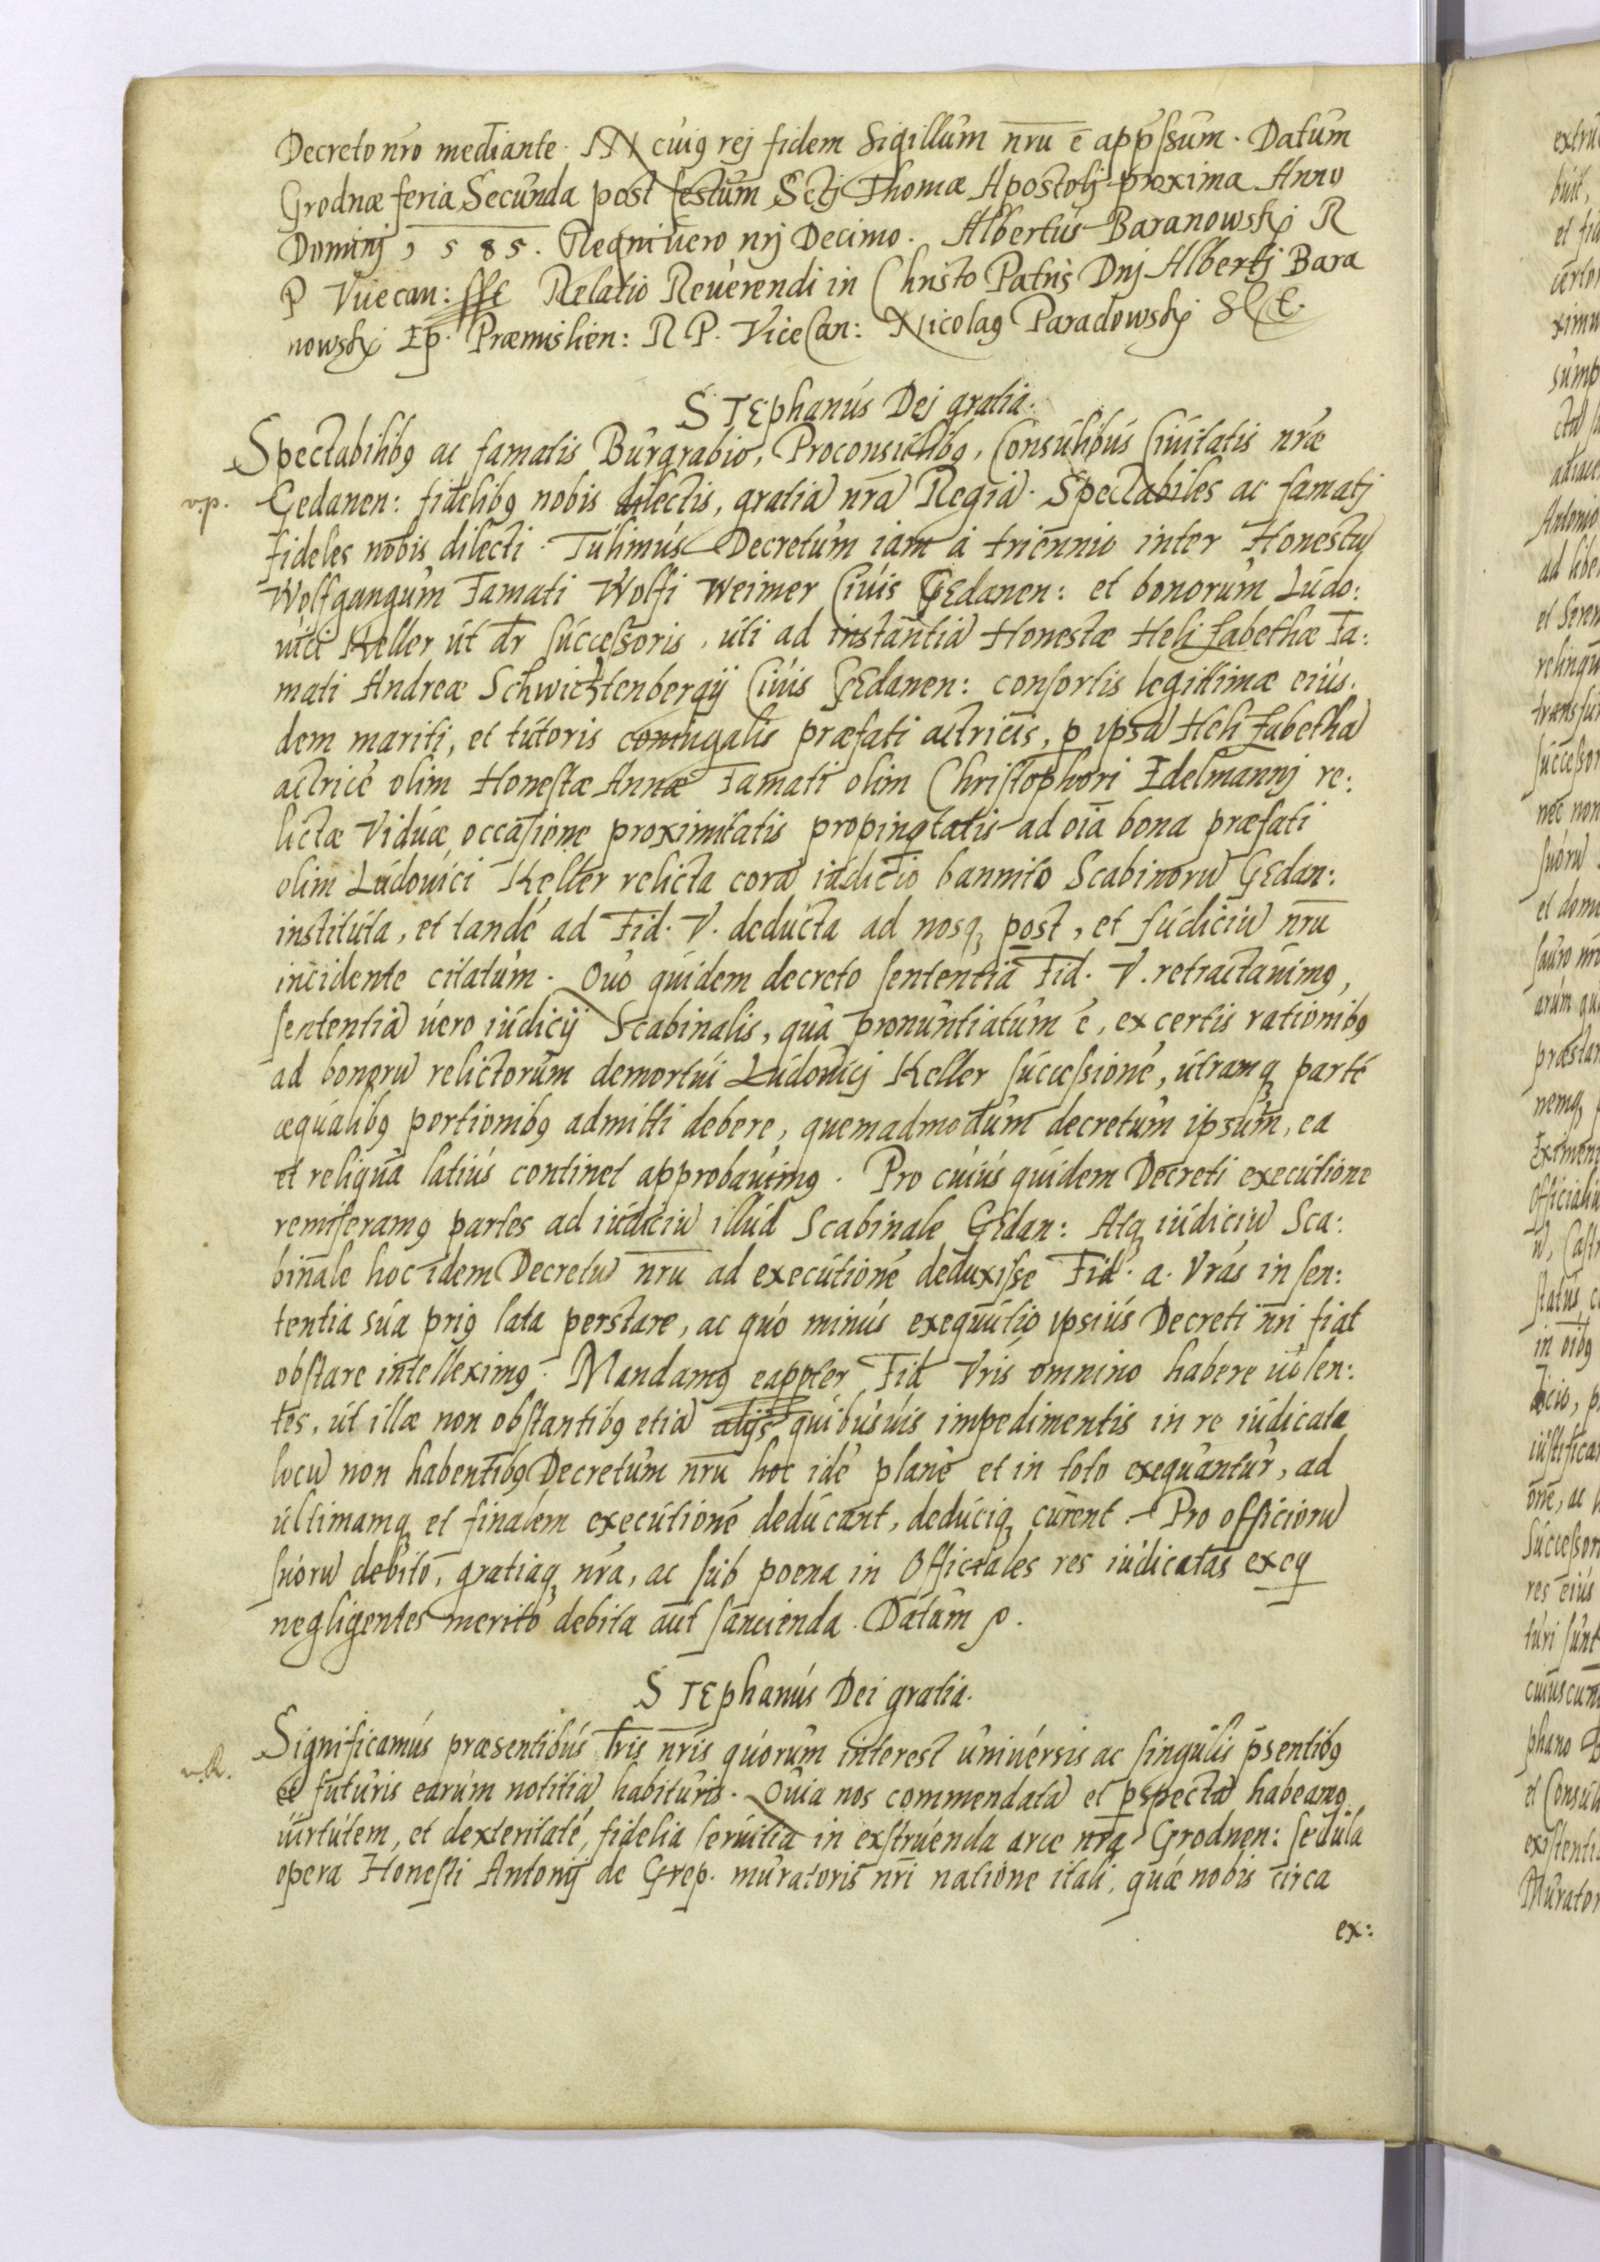 Decreto nr̃o mediante. IN cuiꝯ rej fidem Sigillum nr̃u ẽ app̃ssum. Datum
Grodnæ feria Secunda post festum Sctj Thomæ Apostolj proxima Anno
Dominj 1585. Regni vero nrj Decimo. Albertus Baranowskj R
P Vicecan: sst Relatio Reuerendi in Christo Patris Dnj Albertj Bara
nowskj Ep. Præmislien: R P. ViceCan: Nicolaꝯ Paradowskj
STEphanus Dej gratia.
Spectabilibꝯ ac famatis Burgrabio, Proconsulibꝯ, Consulibus Ciuitatis nræ
v.p. Gedanen: fidelibꝯ nobis dilectis, gratiã nrã Regiã. Spectabiles ac famatj
fideles nobis dilecti. Tulimus Decretum iam à triennio inter Honestũ
Wolfgangum Famati Wolfi Weimer Ciuis GEdanen: et bonorum Ludo:
uici Keller ut dr̃ successoris, uti ad instantiã Honestæ Helizabethæ Fa:
mati Andreæ Schwichtenbergij Ciuis GEdanen: consortis legittimæ eius.
dem mariti, et tutoris coniugalis præfati actricis, p ipsã Helizabethã
actricẽ olim Honestæ Annæ Famati olim Christophori Edelmannj re:
lictæ Viduæ occasione proximitatis propinqtatis ad oĩa bona præfati
olim Ludouici Keller relicta corã iudicio bannito Scabinorũ GEdan:
instituta, et tandẽ ad Fid. V. deducta ad nosq̃ post, et Iudiciũ nr̃u
incidente citatum. Quo quidem decreto sententiã Fid. V. retractauimꝯ,
sententiã uero iudicij Scabinalis, quã pronuntiatum ẽ, ex certis rationibꝯ
ad bonorũ relictorum demortui Ludouicj Keller successionẽ, utramq̃ partẽ
æqualibꝯ portionibꝯ admitti debere, quemadmodum decretum ipsum, ea
et reliqua latius continet approbauimꝯ. Pro cuius quidem Decreti executione
remiseramꝯ partes ad iudiciũ illud Scabinale GEdan: Atq̃ iudiciũ Sca:
binale hoc idem Decretũ nr̃u ad executionẽ deduxisse Fid. a. Vr̃as in sen:
tentia sua priꝯ lata perstare, ac quo minus exequutio ipsius Decreti nr̃i fiat
obstare intelleximꝯ. Mandamꝯ eappter Fid Vris omnino habere uolen:
tes, ut illæ non obstantibꝯ etiã alijs quibusuis impedimentis in re iudicata
locũ non habentibꝯ Decretum nr̃u hoc idẽ planè et in toto exequantur, ad
ultimamq̃ et finalem executionẽ deducant, deduciq̃ curent. Pro officiorũ
suorũ debito, gratiaq̃ nr̃a, ac sub poena in Officiales res iudicatas exeq
negligentes meritò debita aut sancienda. Datum p.
STEphanus Dei gratia.
Significamus præsentibus lr̃is nr̃is quorum interest uniuersis ac singulis p̃sentibꝯ
v.R. et futuris earum notitiã habituris. Quia nos commendatã et pspectã habeamꝯ
uirtutem, et dexteritatẽ, fidelia seruitia in exstruenda arce nr̃a Grodnen: sedula
opera Honesti Antonij de Grep. muratoris nr̃i natione itali, quæ nobis circa
ex: